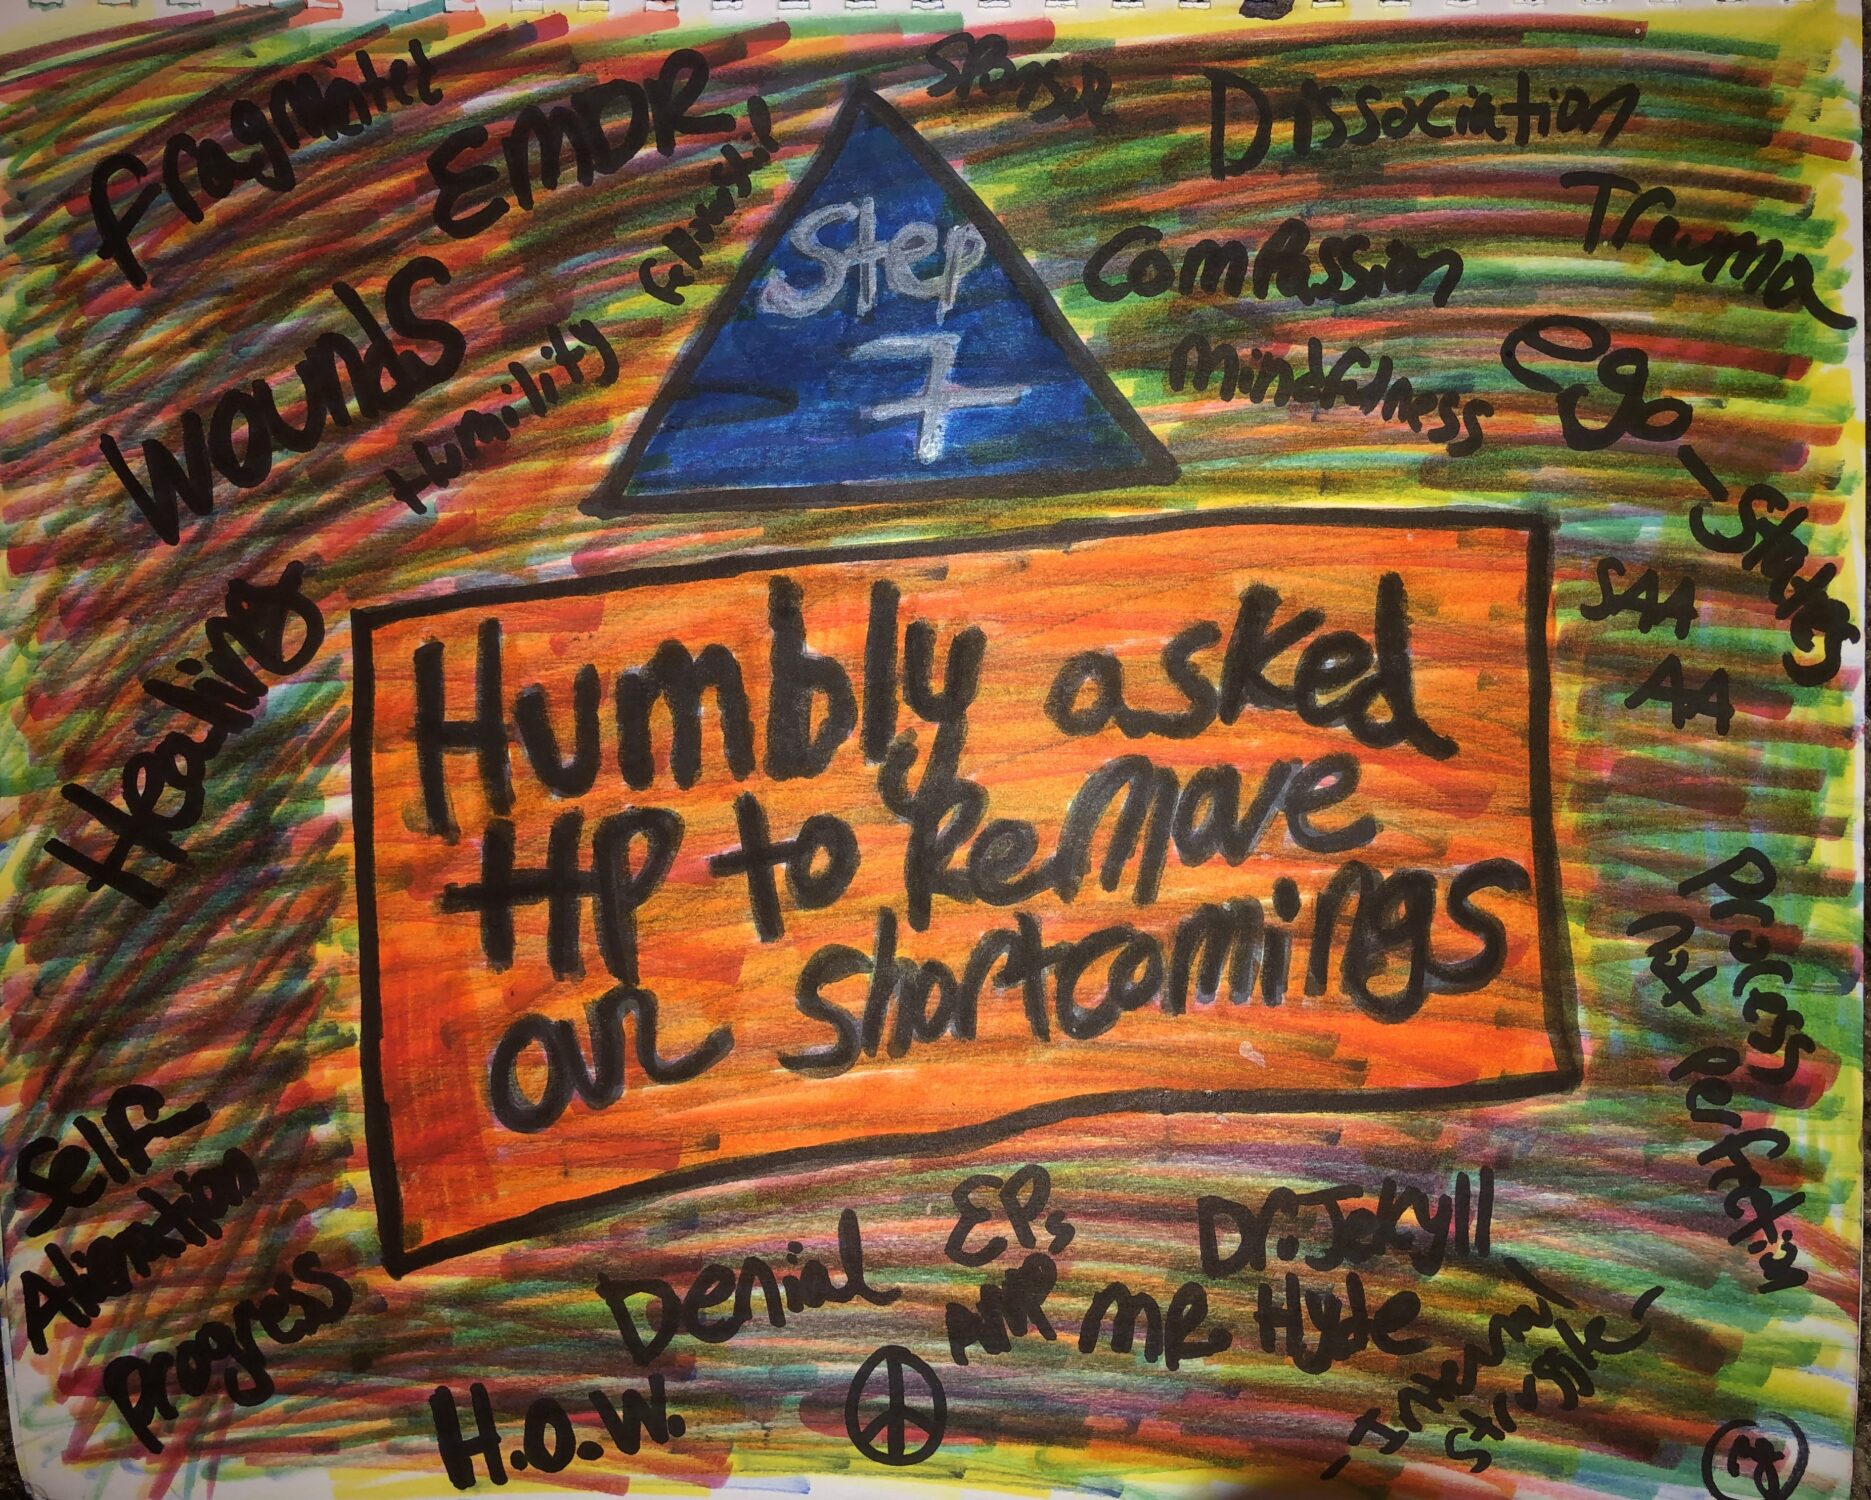 Fragmintet
EMDR
Sponsor
Dissociation
Trauma
Compassion
Mindfulness
ego
-States
Wounds
Humility
Step
7
SAA
AA
Healing
Humbly asked
HP to Remove
our shortcomings
Process
Not Perfection
Self
Alienation
Progress
Denial
EPs
ANP
Dr. Jekyll
MR Hyde
Internal
Struggle
H.O.W.